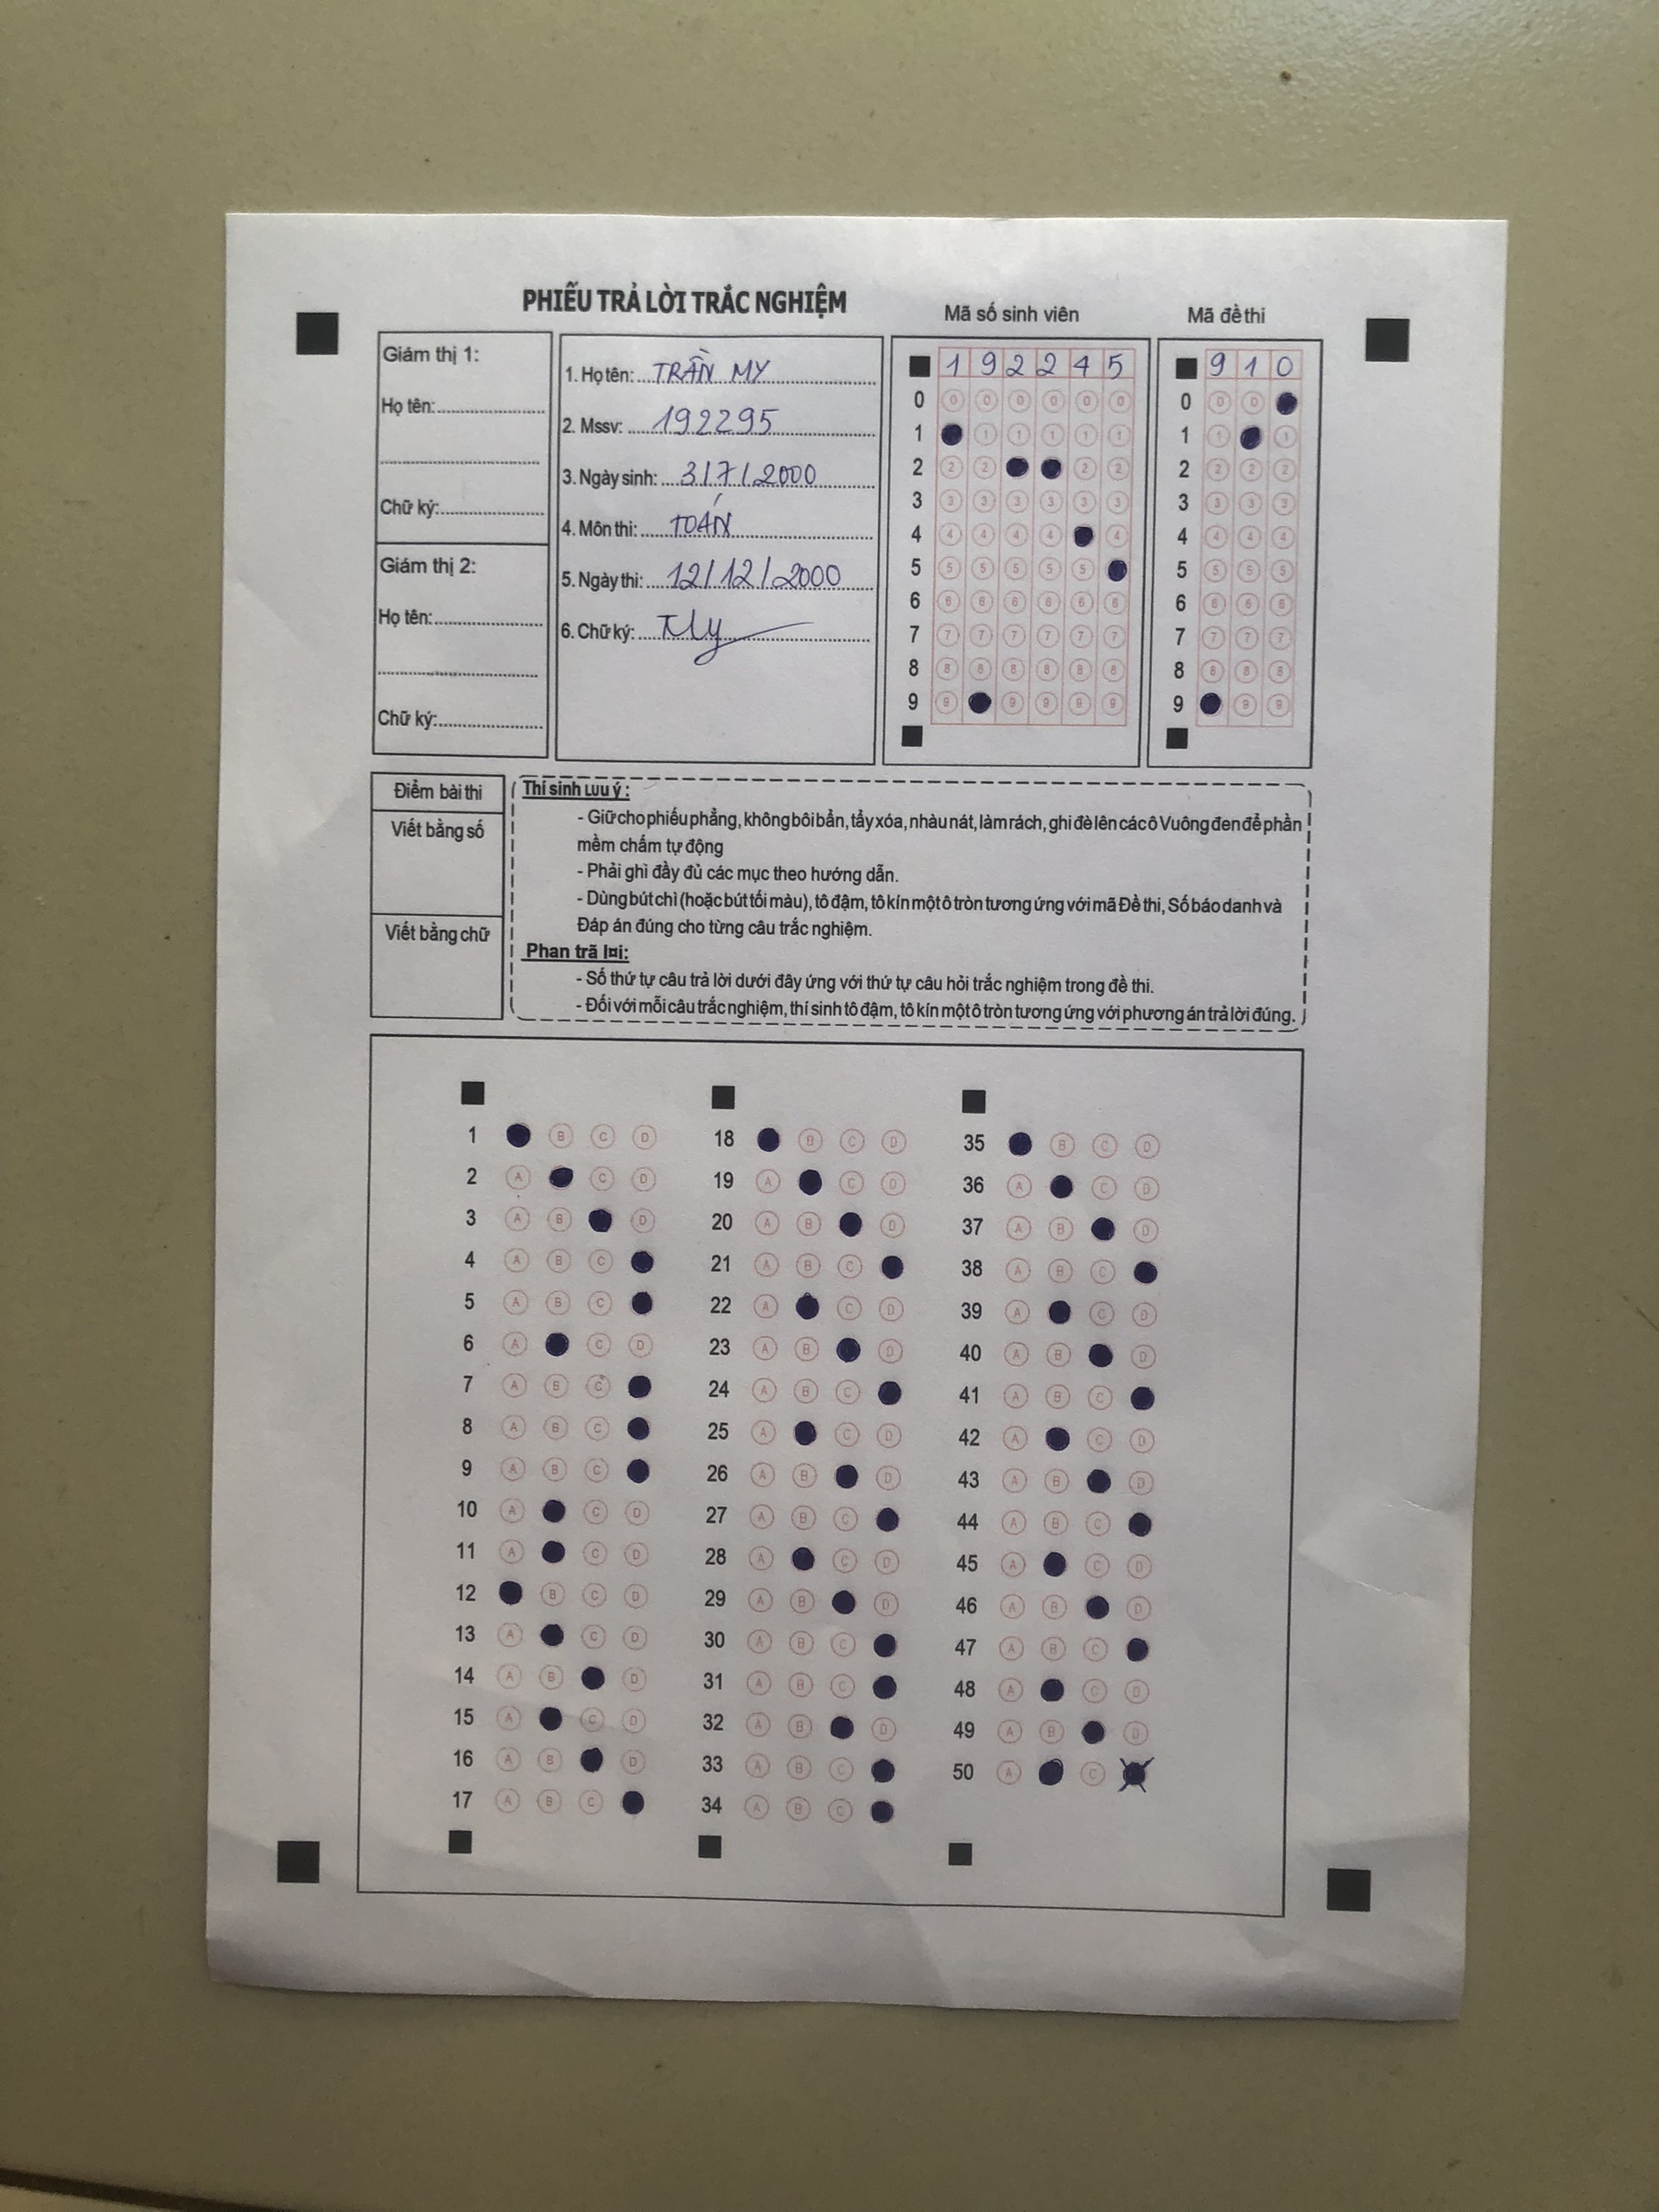 PHIẾU TRẢ LỜI TRẮC NGHIỆM
Mã số sinh viên
Mã đề thi
Giám thị 1:
Họ tên:
Chữ ký:
Giám thị 2:
Họ tên:
Chữ ký:
1. Họ tên: TRẦN MY
2. Mssv: 192295
3. Ngày sinh: 3/7/2000
4. Môn thi: TOÁN
5. Ngày thi: 12/12/2000
6. Chữ ký: TMy
1 9 2 2 4 5
0 0 0 0 0 0 0
1 1 1 1 1 1
2 2 2 2 2
3 3 3 3 3 3 3
4 4 4 4 4 4
5 5 5 5 5 5
6 6 6 6 6 6 6
7 7 7 7 7 7 7
8 8 8 8 8 8 8
9 9 9 9 9 9
9 1 0
0 0 0
1 1 1
2 2 2 2
3 3 3 3
4 4 4 4
5 5 5 5
6 6 6 6
7 7 7 7
8 8 8 8
9 9 9
Điểm bài thi
Viết bằng số
Viết bằng chữ
Thí sinh Lưu ý:
- Giữ cho phiếu phẳng, không bôi bẩn, tẩy xóa, nhàu nát, làm rách, ghi đè lên các ô Vuông đen để phần
mềm chấm tự động
- Phải ghì đầy đủ các mục theo hướng dẫn.
- Dùng bút chì (hoặc bút tối màu), tô đậm, tô kín một ô tròn tương ứng với mã Đề thi, Số báo danh và
Đáp án đúng cho từng câu trắc nghiệm.
Phan trã lơi:
- Số thứ tự câu trả lời dưới đây ứng với thứ tự câu hỏi trắc nghiệm trong đề thi.
- Đối với mỗi câu trắc nghiệm, thí sinh tô đậm, tô kín một ô tròn tương ứng với phương án trả lời đúng.
1 B C D
2 A C D
3 A B D
4 A B C
5 A B C
6 A C D
7 A B C
8 A B C
9 A B C
10 A C D
11 A C D
12 B C D
13 A C D
14 A B D
15 A C D
16 A B D
17 A B C
18 B C D
19 A C D
20 A B D
21 A B C
22 A C D
23 A B D
24 A B C
25 A C D
26 A B D
27 A B C
28 A C D
29 A B D
30 A B C
31 A B C
32 A B D
33 A B C
34 A B C
35 B C D
36 A C D
37 A B D
38 A B C
39 A C D
40 A B D
41 A B C
42 A C D
43 A B D
44 A B C
45 A C D
46 A B D
47 A B C
48 A C D
49 A B D
50 A C